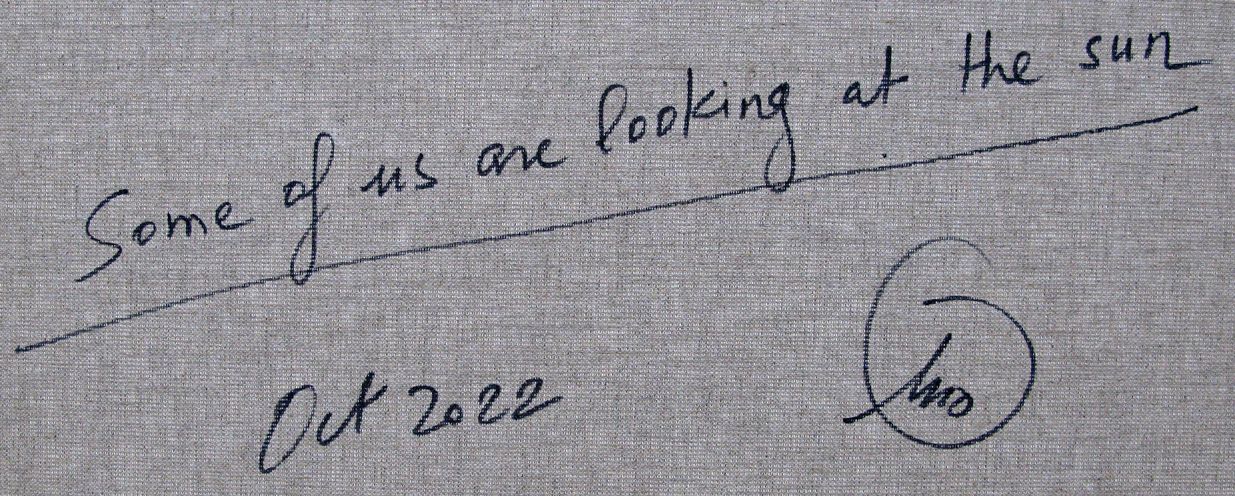 Some of us are looking at the sun
Oct 2022